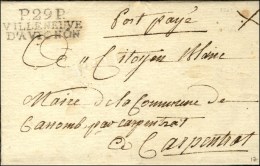 Port payé
P.29.P.
VILLENEUVE
D'AVIGNON
Au Citoyen Blanc
Maire de la Commune de
Caromb par carpentras
à Carpentras